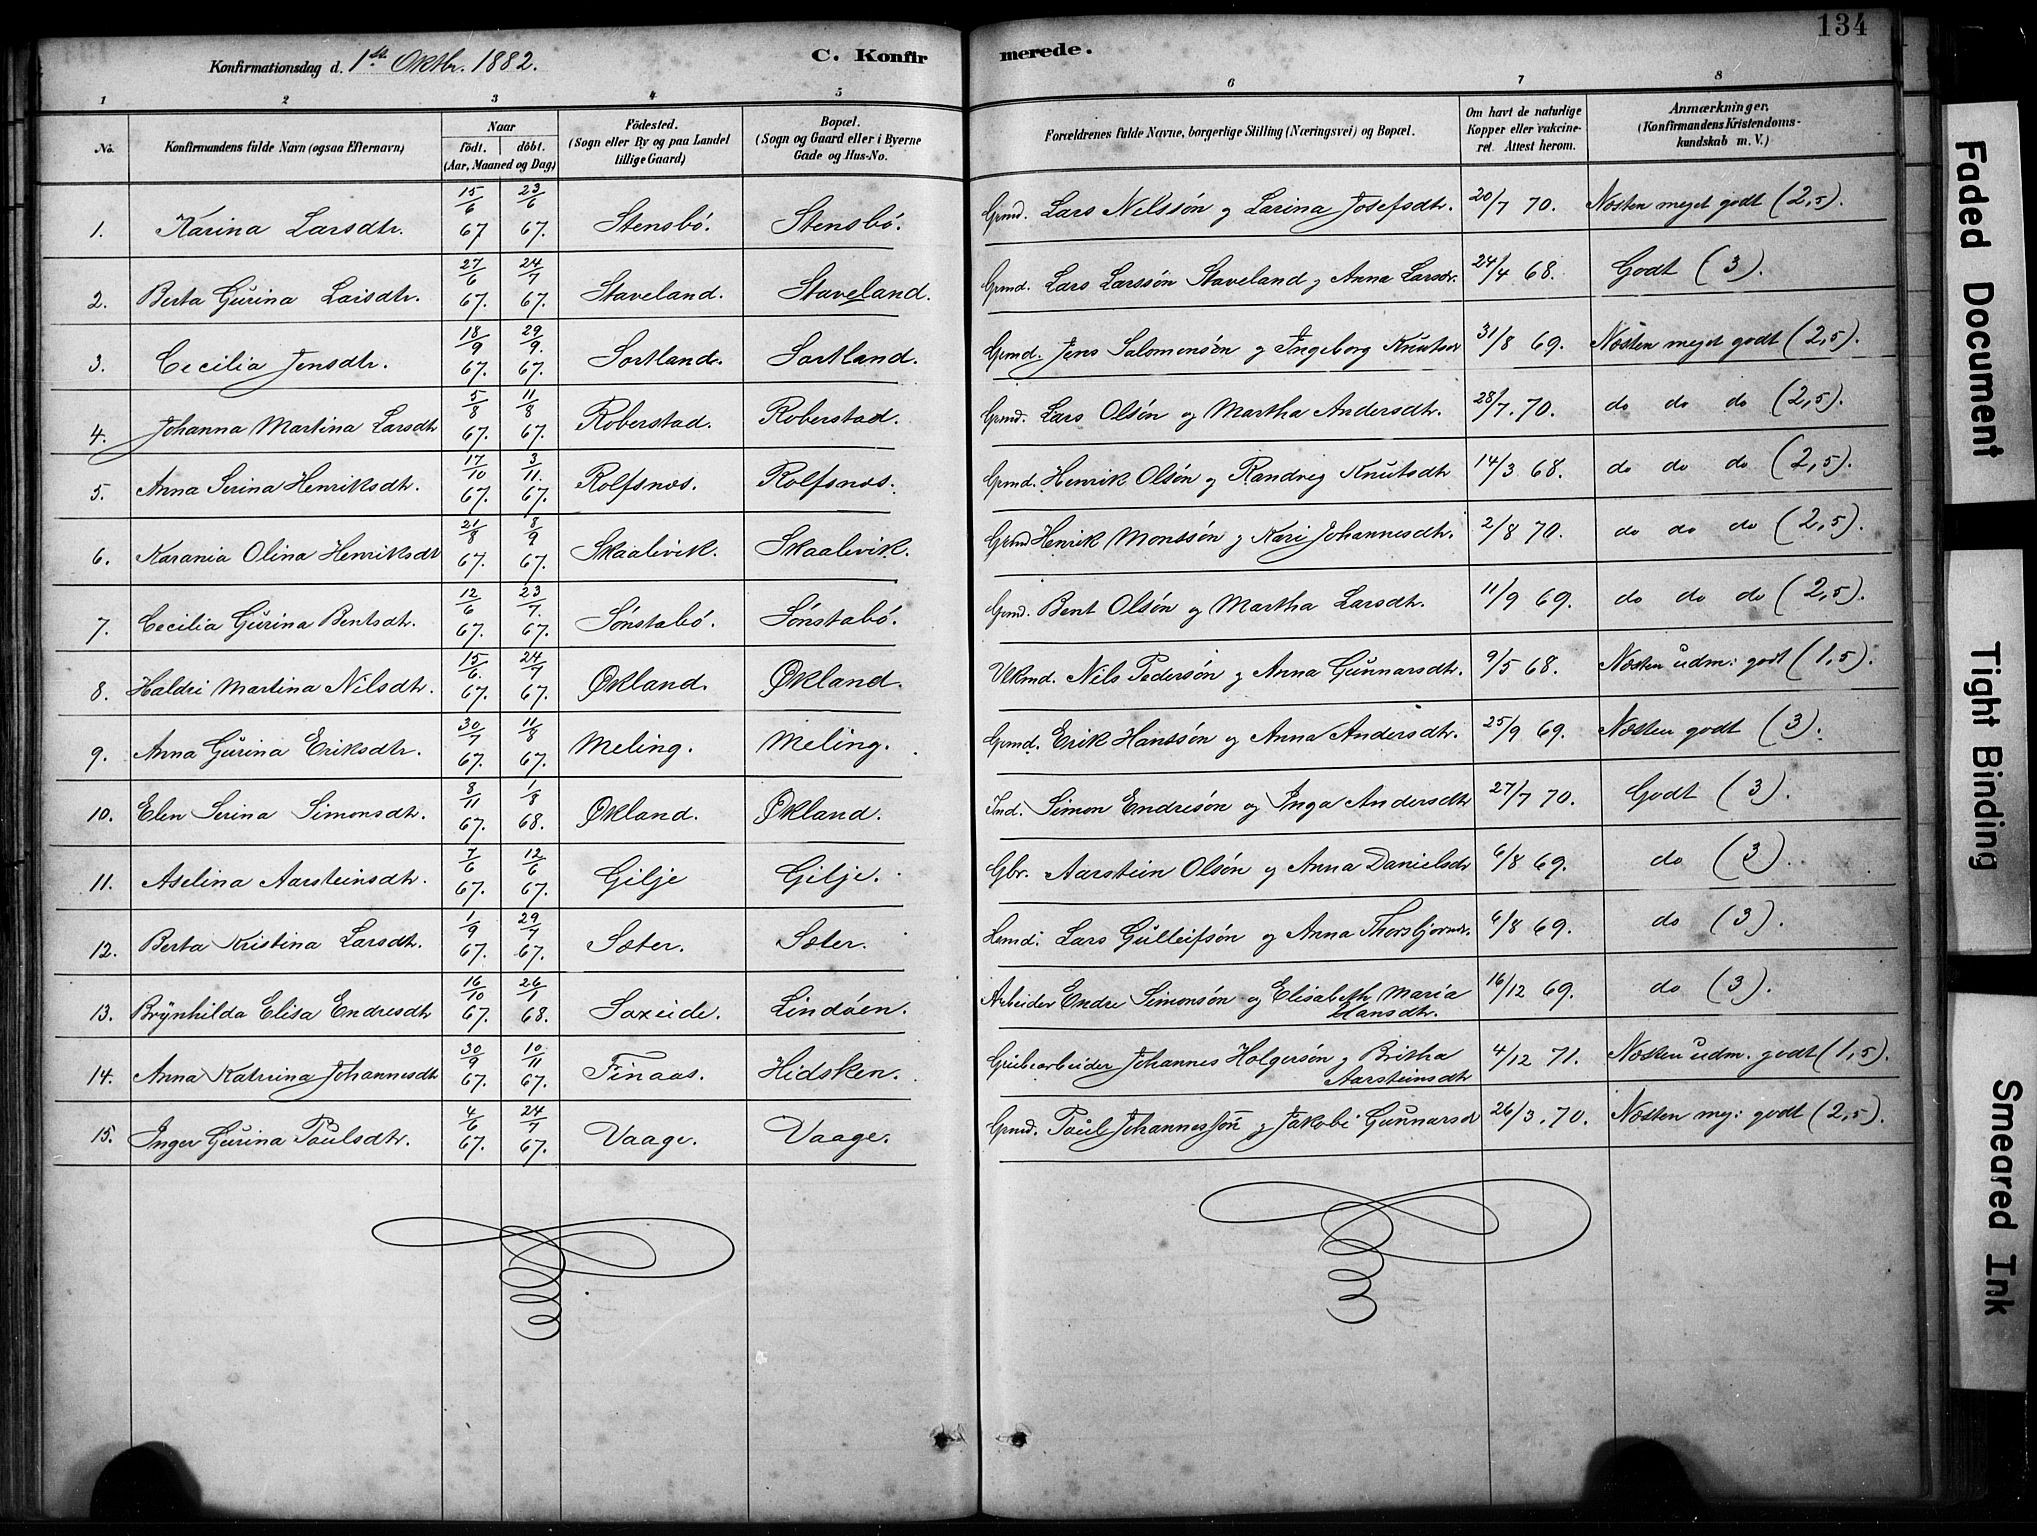 134
Konfirmationsdag d. 1ste Oktbr. 1882. C. Konfir merede.
1 2 3 4 5 6 7 8
No. Konfirmandens fulde Navn (ogsaa Efternavn) Naar födt. döbt. (Aar, Maaned og Dag) Födested. (Sogn eller By og paa Landet tillige Gaard) Bopæl. (Sogn og Gaard eller i Byerne Gade og Hus-No. Forældrenes fulde Navne, borgerlige Stilling (Næringsvei) og Bopæl. Om havt de naturlige Kopper eller vakcineret. Attest herom. Anmærkninger. (Konfirmandens Kristendomskundskab m. V.)
1. Karina Larsdtr. 15/6 67 23/6 67. Stensbó. Stensbó. Grmd. Lars Nilssón og Larina Josefsdtr. 20/7 70. Næsten meget godt (2,5).
2. Berta Gurina Larsdtr. 27/6 67. 24/7 67. Staveland. Staveland. Grmd. Lars Larssón Staveland og Anna Larsdr. 24/4 68. Godt (3).
3. Cecilia Jensdtr. 18/9 67. 29/9. 67. Sortland. Sortland. Grmd. Jens Salomonsón og Ingeborg Knutsdr 31/8 69. Næsten meget godt (2,5).
4. Johanna Martina Larsdtr 5/8 67. 11/8 67. Roberstad. Roberstad. Grmd. Lars Olsón og Martha Andersdtr. 28/7. 70. do do do (2,5).
5. Anna Serina Henriksdtr. 17/10 67. 3/11. 67. Rolfsnæs. Rolfsnæs. Grmd. Henrik Olsón og Randveg Knutsdtr 14/3 68. do do do (2,5).
6. Karania Olina Henriksdtr 21/8 67. 8/9 67. Skaalevik. Skaalevik. Grmd Henrik Monssón og Kari Johannesdtr. 2/8 70. do do do (2,5).
7. Cecilia Gurina Bentsdtr. 12/6 67. 23/7. 67. Sónstabó. Sónstabó. Grmd. Bent Olsón og Martha Larsdtr. 11/9 69. do do do (2,5).
8. Haldri Martina Nilsdtr. 15/6. 67. 24/7 67. Økland. Økland. Vkmd. Nils Pedersón og Anna Gunnarsdtr. 9/5 68. Næsten udm: godt (1,5).
9. Anna Gurina Eriksdtr. 30/7 67. 11/8 67. Meling. Meling. Grmd. Erik Hanssón og Anna Andersdtr. 25/9 69. Næsten godt (3).
10. Elen Serina Simonsdtr. 8/11 67. 1/8 68. Økland. Økland. Ind. Simon Endresón og Inga Andersdtr 27/7 70. Godt (3).
11. Aselina Aarsteinsdtr. 7/6 67. 12/6 67. Gilje Gilje. Gbr. Aarstein Olsón og Anna Danielsdr 6/8 69. do (3).
12. Berta Kristina Larsdtr. 1/9 67. 29/7 67. Sæter. Sæter. Hsmd. Lars Gulleifsón og Anna Thorsbjornsdr. 6/8 69. do (3).
13. Brynhilda Elisa Endresdtr 16/10 67. 26/1 68. Saxeide. Lindóen. Arbeider Endre Simonsón og Elisabeth Maria Hansdtr. 16/12 69. do (3).
14. Anna Katrina Johannesdtr 30/9 67. 10/11 67. Finaas. Hidsken. Grubearbeider Johannes Holgersón og Britha Aarsteinsdtr 4/12 71. Næsten udm. godt (1,5).
15. Inger Gurina Poulsdtr. 4/6 67. 24/7 67. Vaage. Vaage. Grmd. Poul Johannessón og Jakobi Gunnarsdr 26/3. 70. Næsten mej: godt (2,5).
Faded Document
Tight Binding
Smeared Ink